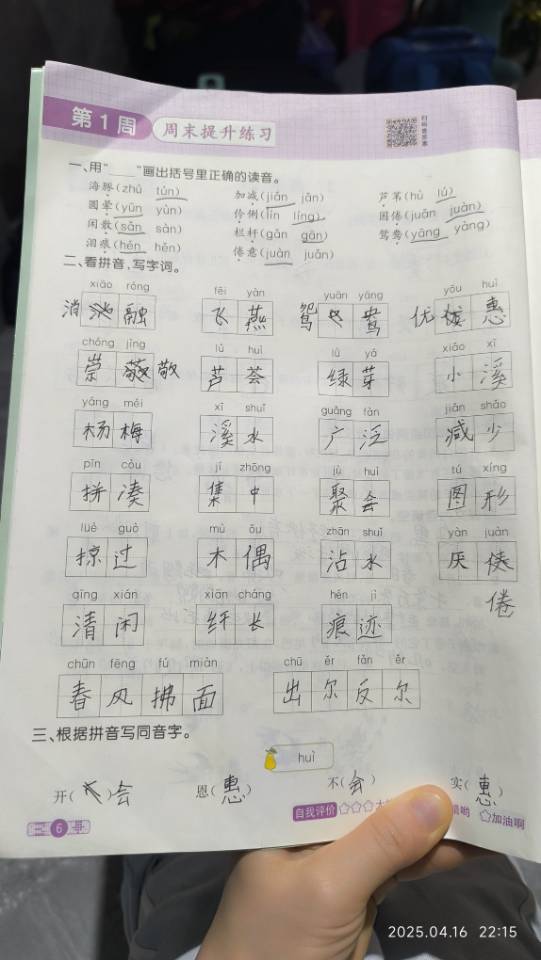 第1周 周末提升练习
扫码查答案
一、用“____”画出括号里正确的读音。
海豚(zhū tún) 加减(jiǎn jǎn) 芦苇(hú lú)
圆晕(yūn yùn) 伶俐(lín líng) 困倦(juǎn juàn)
闲散(sǎn sàn) 栏杆(gǎn gān) 鸳鸯(yāng yàng)
泪痕(hén hèn) 倦意(juàn juǎn)
二、看拼音,写字词。
xiāo róng fēi yàn yuān yāng yōu huì
消 融 飞 燕 鸳 鸯 优 惠
chóng jìng lú huì lǜ yá xiǎo xī
崇 敬 敬 芦 荟 绿 芽 小 溪
yáng méi xī shuǐ guǎng fàn jiǎn shǎo
杨 梅 溪 水 广 泛 减 少
pīn còu jí zhōng jù huì tú xíng
拼 凑 集 中 聚 会 图 形
lüè guò mù ǒu zhān shuǐ yàn juàn
掠 过 木 偶 沾 水 厌
倦
qīng xián xiān cháng hén jì
清 闲 纤 长 痕 迹
chūn fēng fú miàn chū ěr fǎn ěr
春 风 拂 面 出 尔 反 尔
三、根据拼音写同音字。
huì
开( )会 恩(惠) 不(会) 实(惠)
三 6 册 自我评价 哟 加油啊
2025.04.16 22:15